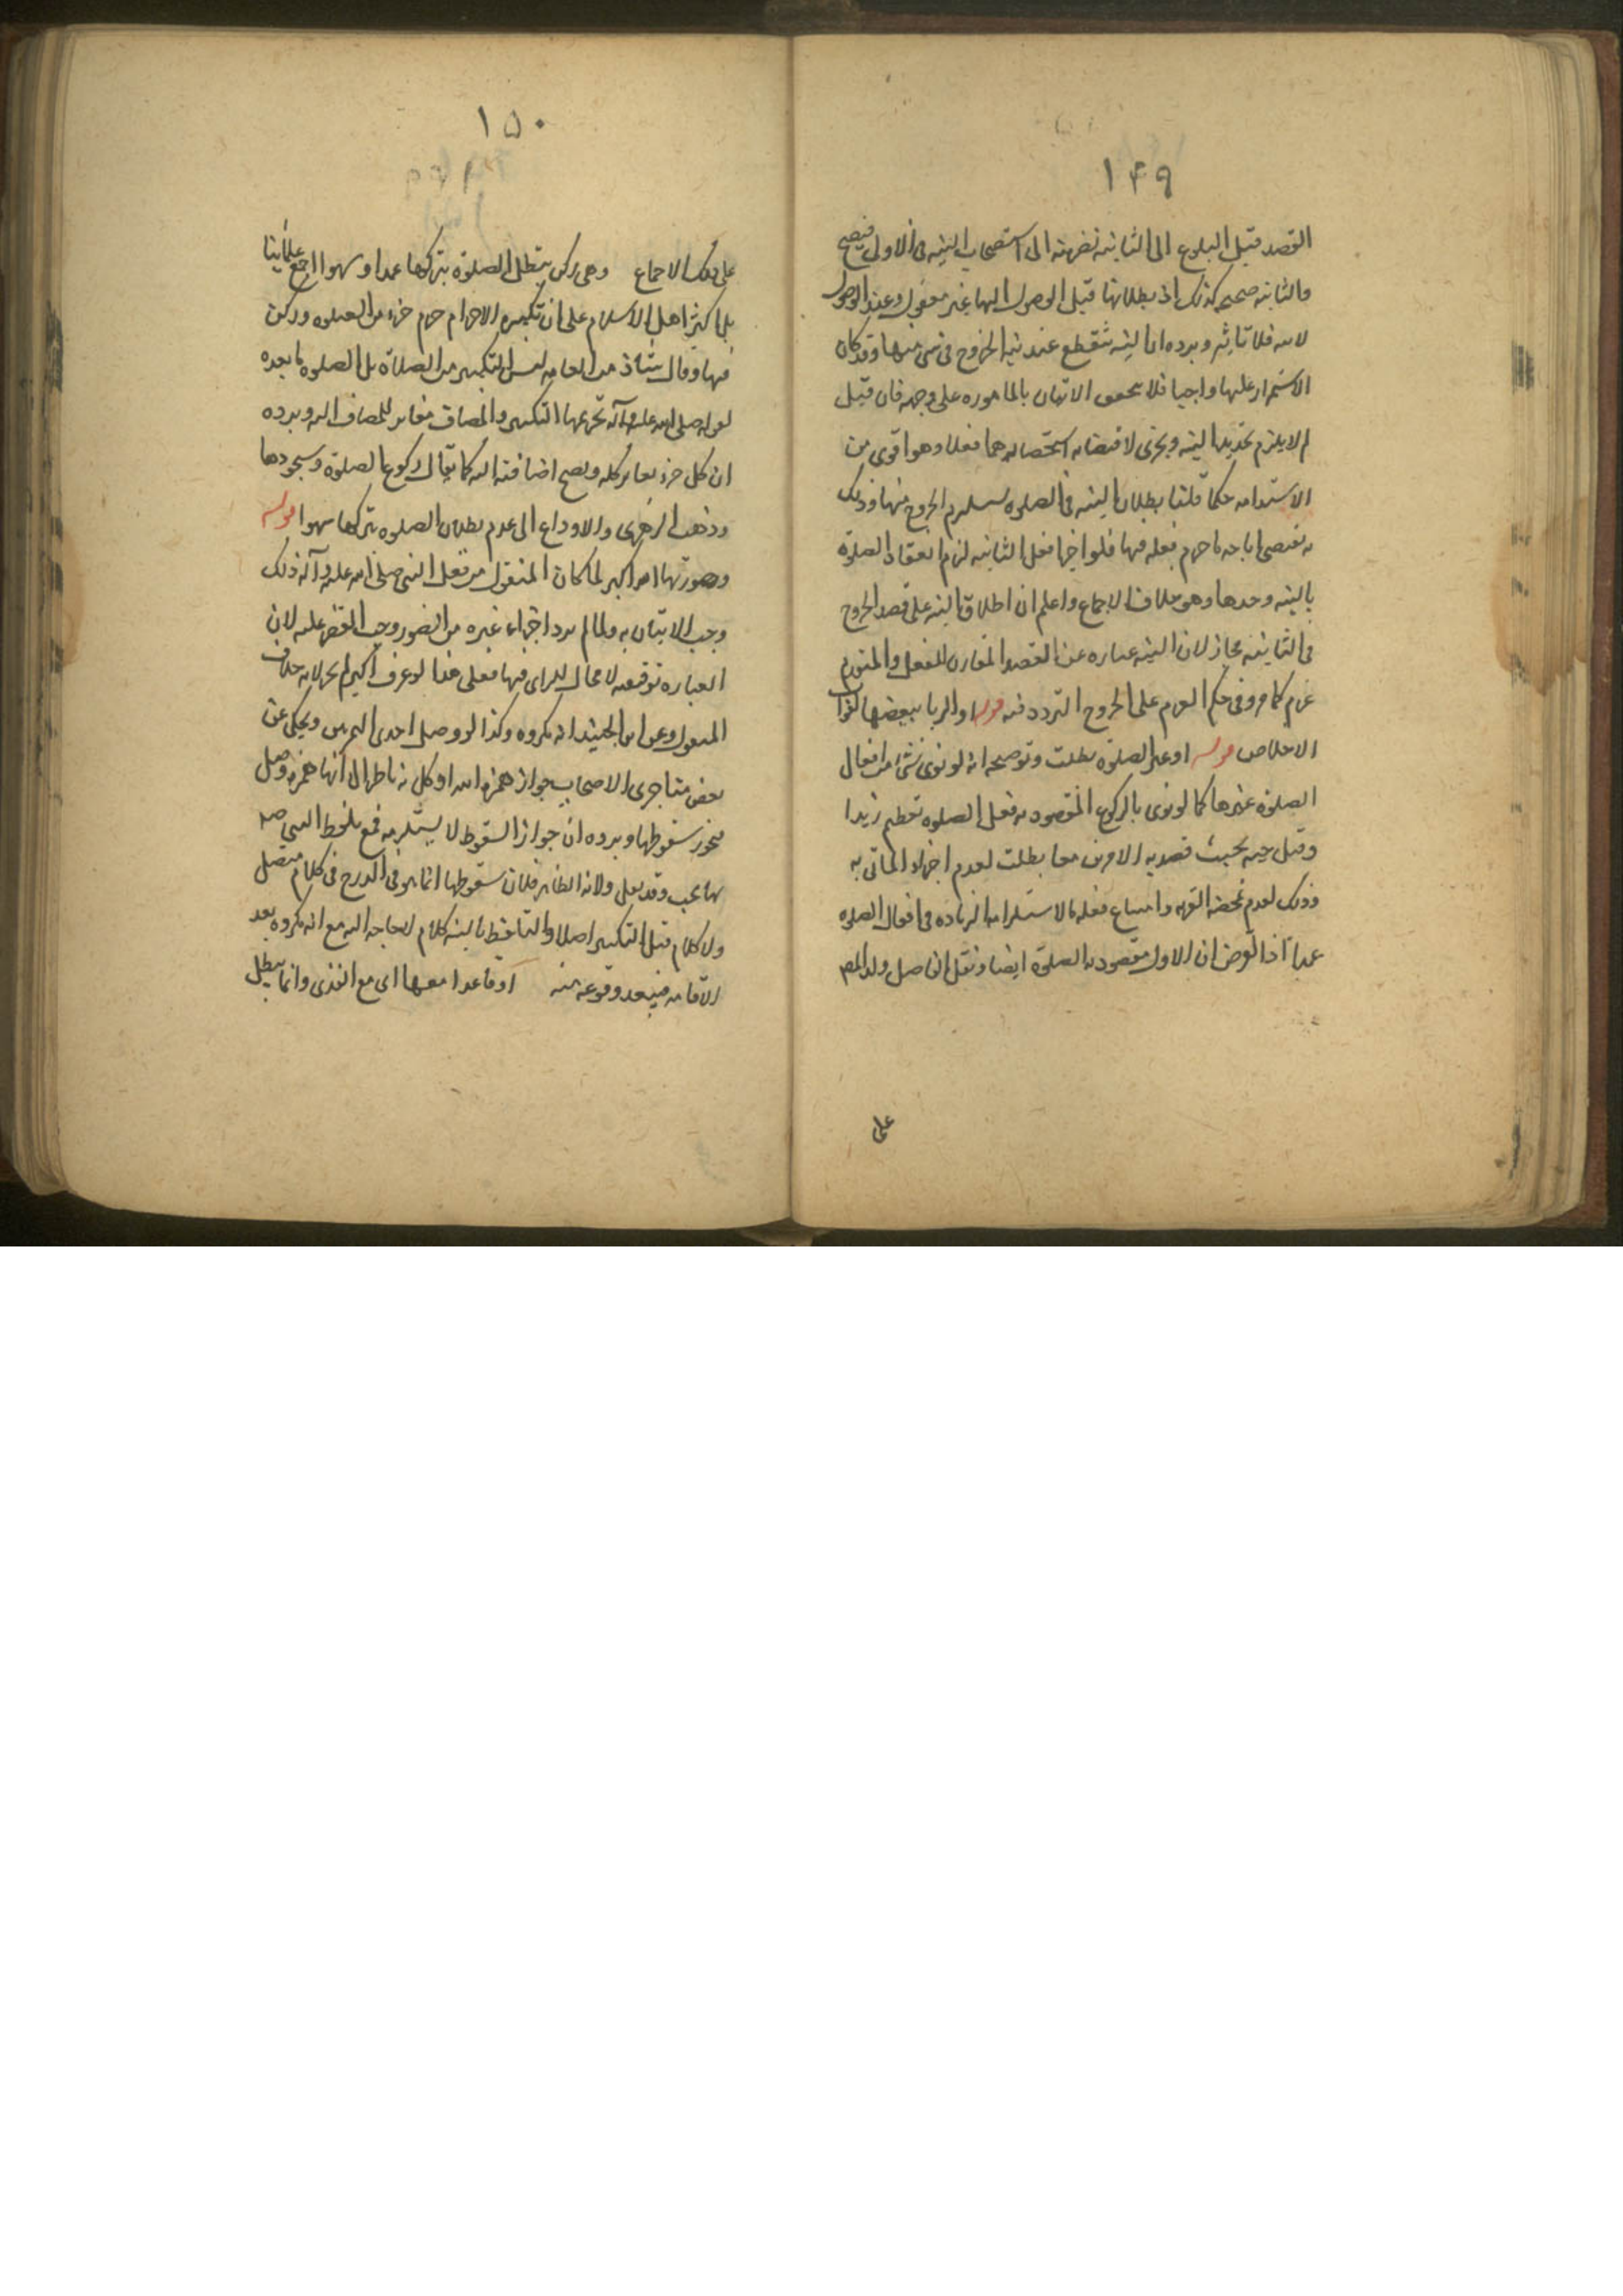 ١٤٩
القصد قبل البلوغ الى الثانيه نضرته الى استصحاب النيه فى الاولى فيصح
والثانيه صحيحه كذلك اذ بطلانها قبل الوصول اليها غير معقول وعند الوصول
فلا تاثير ويرده ان النيه تنقطع عند نيه الخروج فى شى منها وقد كان
الاستمرار عليها واجبا فلا يتحقق الاتيان بالمامور به على وجهه فان قيل
لم لا يلزم تجديد النيه ويجزى لاقتضائه استحضارهما فعلا وهو اقوى من
الاستدامه حكما قلنا بطلان النيه فى الصلوه يستلزم الخروج منها وذلك
يقتضى اباحه ما حرم فعله فيها فلو اجزا فعل الثانيه لزم انعقاد الصلوة
بالنيه وحدها وهو خلاف الاجماع واعلم ان اطلاق النيه على قصد الخروج
فى الثانيه مجاز لان النيه عباره عن القصد المقارن للفعل والمتقدم
عزم كما مر وفى حكم العزم على الخروج التردد فيه قوله او الريا ببعضها لفوات
الاخلاص قوله او غير الصلوة بطلت وتوضيحه انه لو نوى بشى من افعال
الصلوة غيرها كما لو نوى بالركوع المقصود به فعل الصلوه تعظيم زيدا
وقتل حيه بحيث قصد به الامرين معا بطلت لعدم اجزاء الماتى به
وذلك لعدم تمحضه القربه وامتناع فعله لاستلزامه الزياده فى افعال الصلوه
عمدا اذ الفرض ان الاول مقصود به الصلوة ايضا ونقل الفاضل ولد المص
على
١٥٠
على ذلك الاجماع وهى ركن تبطل الصلوة بتركها عمدا وسهوا اجمع علمائنا
بل اكثر اهل الاسلام على ان تكبيره الاحرام جزء من الصلوه وركن
فيها وقال شاذ من العامه ليس التكبير من الصلاة بل الصلوه ما بعده
لقوله صلى الله عليه وآله تحريمها التكبير والمضاف مغاير للمضاف اليه ويرده
ان كل جزء يغاير كله ويصح اضافته اليه كما يقال ركوع الصلوة وسجودها
وذهب الزهرى والاوزاعى الى عدم بطلان الصلوه بتركها سهوا قوله
وصورتها الله اكبر لما كان المنقول من فعل النبى صلى الله عليه وآله ذلك
وجب الاتيان به ولما لم يرد اجزاء غيره من الصور وجب القصر عليه لان
العباره توقيفيه لا مجال للراى فيها فعلى هذا لو عرف اكبر لم يجز لانه خلاف
المنقول وعن ابن الجنيد انه مكروه وكذا لو وصل احدى الهمزتين ويحكى عن
بعض متاخرى الاصحاب جواز همزه الله اوكل به ناظرا الى انها همزه وصل
فيجوز سقوطها ويرده ان جواز السقوط لا يستلزمه فمع تلفظ النبى صه
بها يجب وقد يعلى ولانه الظاهر فلان سقوطها انما هو فى الدرج فى كلام متصل
ولا كلام قبل التكبير اصلا والتلفظ بالنيه كلام لا حاجه اليه مع انه مكروه بعد
الاقامه فيبعد وقوعه منه او قاعدا معها اى مع القدرى وانما يبطل